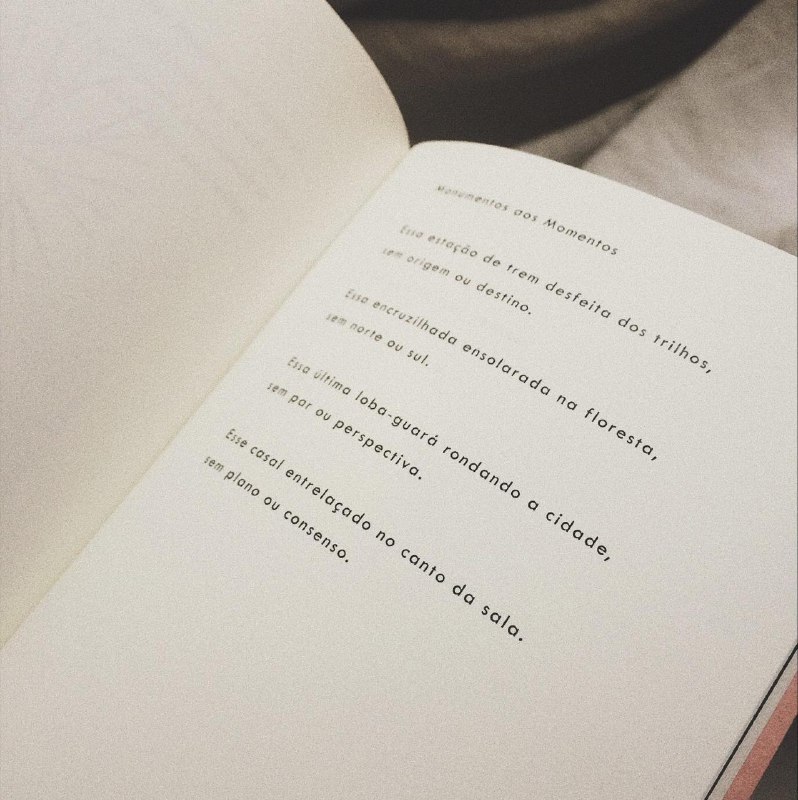 Monumentos aos Momentos
Essa estação de trem desfeita dos trilhos,
sem origem ou destino.
Essa encruzilhada ensolarada na floresta,
sem norte ou sul.
Essa última loba-guará rondando a cidade,
sem par ou perspectiva.
Esse casal entrelaçado no canto da sala.
sem plano ou consenso.